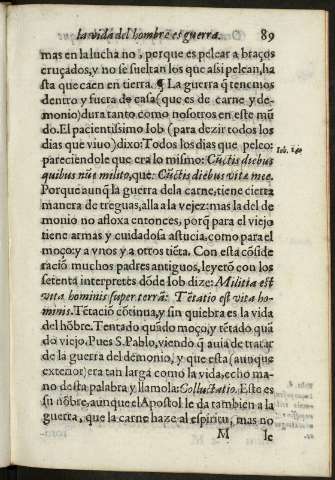 la vida del hombre es guerra. 89
mas en la lucha no, porque es pelear a braços
cruçados, y no se sueltan los que assi pelean, ha
sta que caen en tierra. ¶ La guerra q̃ tenemos
dentro y fuera de casa (que es de carne y de-
monio) dura tanto como nosotros en este mũ
do. El pacientissimo Iob (para dezir todos los
dias que viuo) dixo: Todos los dias que peleo:
pareciendole que era lo mismo: Cũctis diebus
Iob. 14.
quibus nũc milito, que: Cũctis diebus vitæ meę.
Porque aunq̃ la guerra de la carne, tiene cierta
manera de treguas, alla a la vejez: mas la del de
monio no afloxa entonces, porq̃ para el viejo
tiene armas y cuidadosa astucia, como para el
moço: y a vnos y a otros tiẽta. Con esta cõside
raciõ muchos padres antiguos, leyerõ con los
setenta interpretes dõde Iob dize: Militia est
vita hominis super terrã: Tẽtatio est vita ho-
minis. Tẽtaciõ cõtinua, y sin quiebra es la vida
del hõbre. Tentado quãdo moço, y tẽtado quã
do viejo. Pues S. Pablo, viendo q̃ auia de tratar
de la guerra del demonio, y que esta (aunque
exterior) era tan larga como la vida, echo ma
no desta palabra y llamola: Colluctatio. Este es
su nõbre, aunque el Apostol le da tambien a la
guerra, que la carne haze al espiritu, mas no
M
le